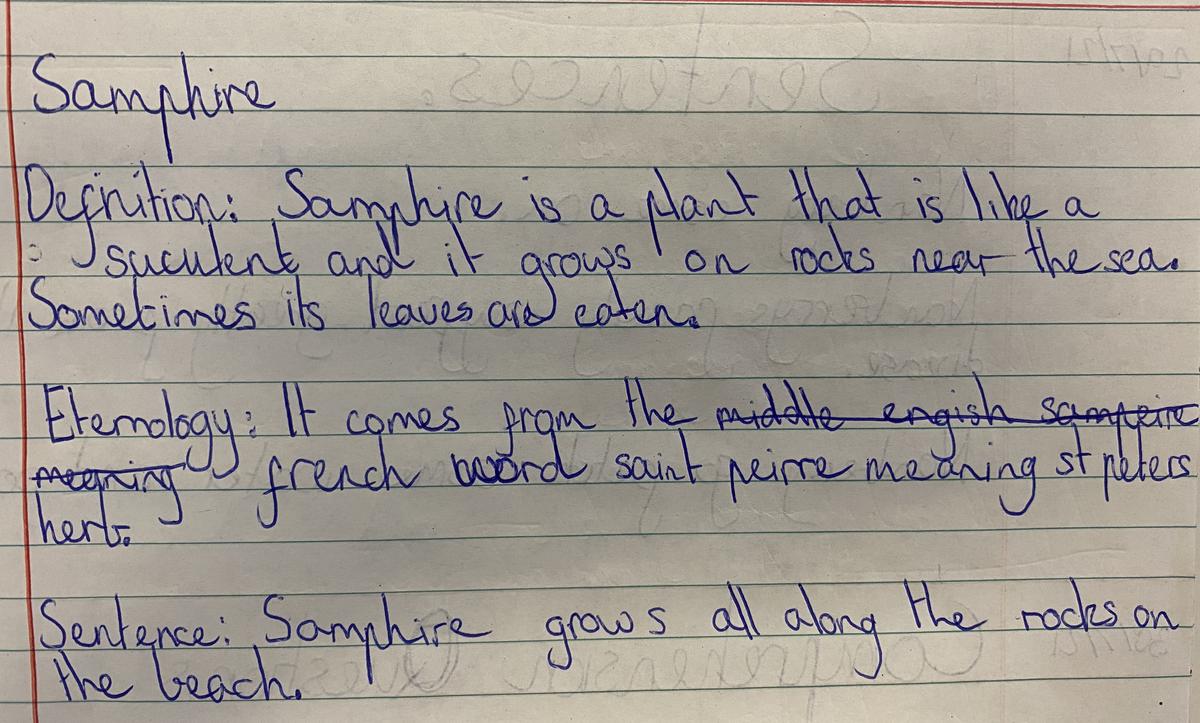 Samphire
Definition: Samphire is a plant that is like a
suculent and it grows on rocks near the sea.
Sometimes its leaves are eaten.
Etemology: It comes from the middle engish sampeire
meaning french word saint peirre meaning st peters
herb.
Sentence: Samphire grows all along the rocks on
the beach.